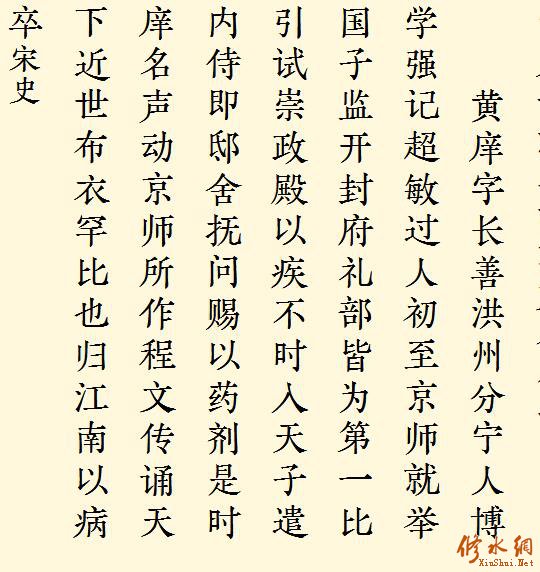 黄庠字长善洪州分宁人博
学强记超敏过人初至京师就举
国子监开封府礼部皆为第一比
引试崇政殿以疾不时入天子遣
内侍即邸舍抚问赐以药剂是时
庠名声动京师所作程文传诵天
下近世布衣罕比也归江南以病
卒宋史
修水網
XiuShui.Net